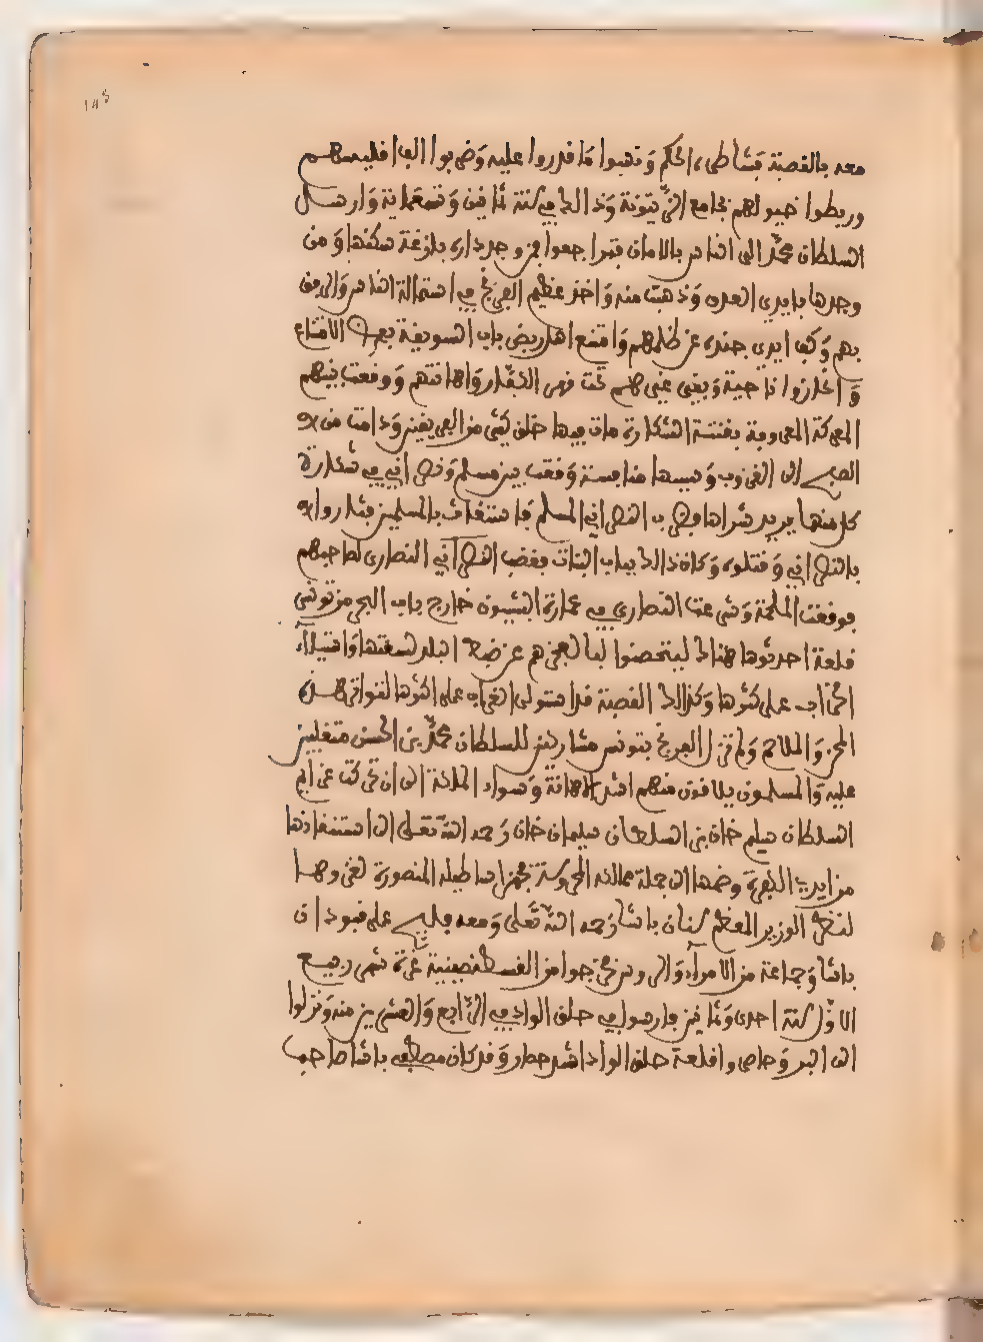 معه بالقصبة فشاطره الحكم ونهبوا ما قدروا عليه وضربوا
وربطوا خيولهم بجامع الزيتونة وذلك في سنة ثمانين وتسعماية وارسل
السلطان محمد الى الناس بالامان فتراجعوا فمن وجد داره فارغة سكنها ومن
وجدها بايدي العدو وذهبت منه واخذ عظيم الفرنج في استمالة الناس والرفق
بهم وكف ايدي جنده عن ظلمهم وامتنع اهل ربض باب السويقة بعض الامتناع
وانحازوا ناحية وبقي غيرهم تحت قهر الكفار واهانتهم ووقعت بينهم
المعركة المعروفة بفتنة الشكارة مات فيها خلق كثير من الفريقين ودامت من
الى الغروب وسببها منافسة وقعت بين مسلم ونصراني في شكارة
كل منهما يريد شراها فضرب النصراني المسلم فاستغاث بالمسلمين فثاروا
بالنصراني وقتلوه وكان ذلك بباب البنات فغضب النصراني النصارى لصاحبهم
فوقعت الملحمة وشرعت النصارى في عمارة البستيون خارج باب البحر من تونس
قلعة احدثوها هناك ليتحصنوا لها لعجزهم عن ضبط البلد لسعتها واستيلاء
الخراب على كثرها وكذلك القصبة قد استولى الخراب على اكثرها لتواتر هذه
المحن والملاحم ولم تزل الفرنج بتونس مشاركين للسلطان محمد بن الحسن متغلبين
عليه والمسلمون يلاقون منهم اشد الاهانة وسواد الملكة الى ان تحركت عزايم
السلطان سليم خان بن السلطان سليمان خان رحمه الله تعالى الى استنقاذها
من ايدي الكفرة وضمها الى جملة ممالكه المحروسة فجهز اساطيله المنصورة لغزوها
لنظر الوزير المعظم سنان باشا رحمه الله تعالى ومعه قلج علي قبودان
باشا وجماعة من الامرآء والى وتر فخرجوا من القسطنطينية غرة شهر ربيع
الاول سنة احدى وثمانين فارسوا في حلق الوادي في الرابع والعشرين منه ونزلوا
الى البر وحاصروا قلعة حلق الواد اشد حصار وقد كان مصطفى باشا صاحب